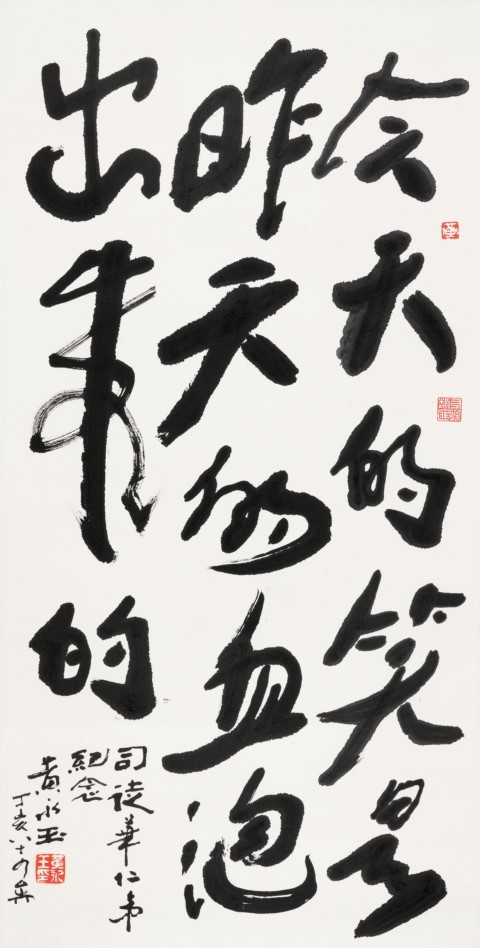 今天的笑是
昨天的血泡
出来的
司徒華仁弟
紀念
黄永玉
丁亥八十四矣